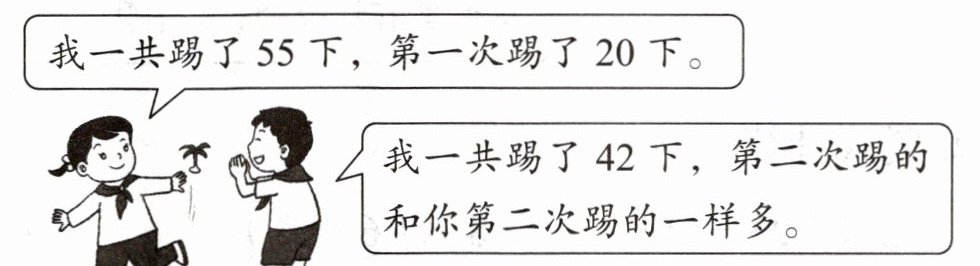 我一共踢了 55 下，第一次踢了 20 下。
我一共踢了 42 下，第二次踢的
和你第二次踢的一样多。